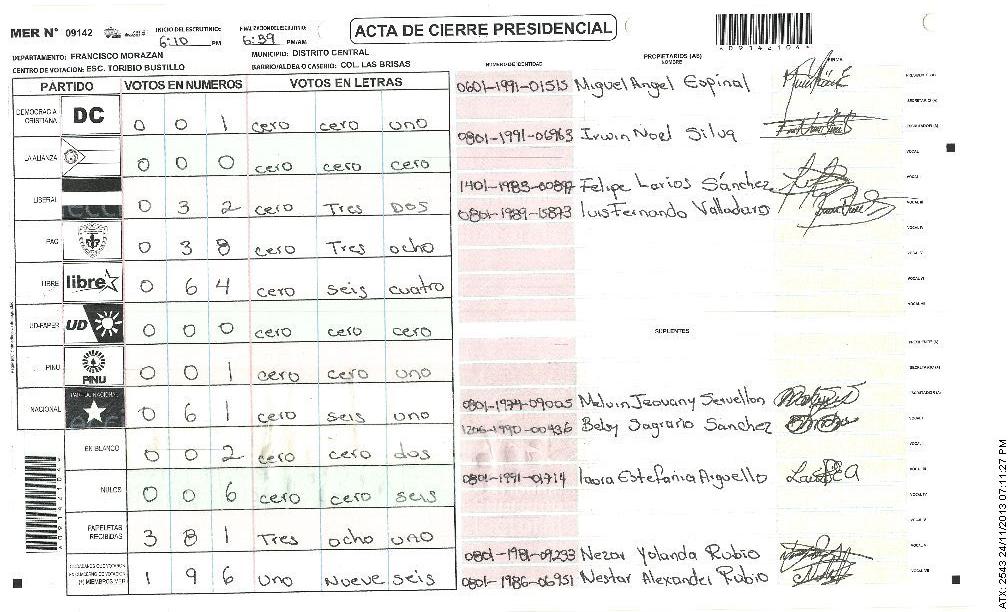 MER N° 09142 INICIO DEL ESCRUTINIO: 6:10 PM FINALIZACION DEL ESCRUTINIO: 6:59 PM/AM ACTA DE CIERRE PRESIDENCIAL
DEPARTAMENTO: FRANCISCO MORAZAN MUNICIPIO: DISTRITO CENTRAL
CENTRO DE VOTACION: ESC. TORIBIO BUSTILLO BARRIO/ALDEA O CASERIO: COL. LAS BRISAS
NUMERO DE IDENTIDAD PROPIETARIOS (AS) NOMBRE FIRMA
PARTIDO VOTOS EN NUMEROS VOTOS EN LETRAS
DEMOCRACIA CRISTIANA DC 0 0 1 cero cero uno
LA ALIANZA 0 0 0 cero cero cero
LIBERAL 0 3 2 cero Tres Dos
PAC 0 3 8 cero Tres ocho
LIBRE libre 0 6 4 cero seis cuatro
UD-FAPER UD 0 0 0 cero cero cero
PINU PINU 0 0 1 cero cero uno
NACIONAL PARTIDO NACIONAL 0 6 1 cero seis uno
EN BLANCO 0 0 2 cero cero dos
NULOS 0 0 6 cero cero seis
PAPELETAS RECIBIDAS 3 8 1 Tres ocho uno
1 9 6 uno Nueve seis
0601-1991-01515 Miguel Angel Espinal
0801-1991-06963 Irwin Noel Silva
1401-1983-00897 Felipe Larios Sánchez
0801-1989-15873 Luis Fernando Valladaro
SUPLENTES
0801-1974-09005 Melvin Jeovany Servellon
1206-1990-00436 Belsy Sagrario Sanchez
0801-1991-01714 Laura Estefania Arguello
0801-1981-09233 Nezar Yolanda Rubio
0801-1986-06951 Nestor Alexander Rubio
ATX: 2543 24/11/2013 07:11:27 PM